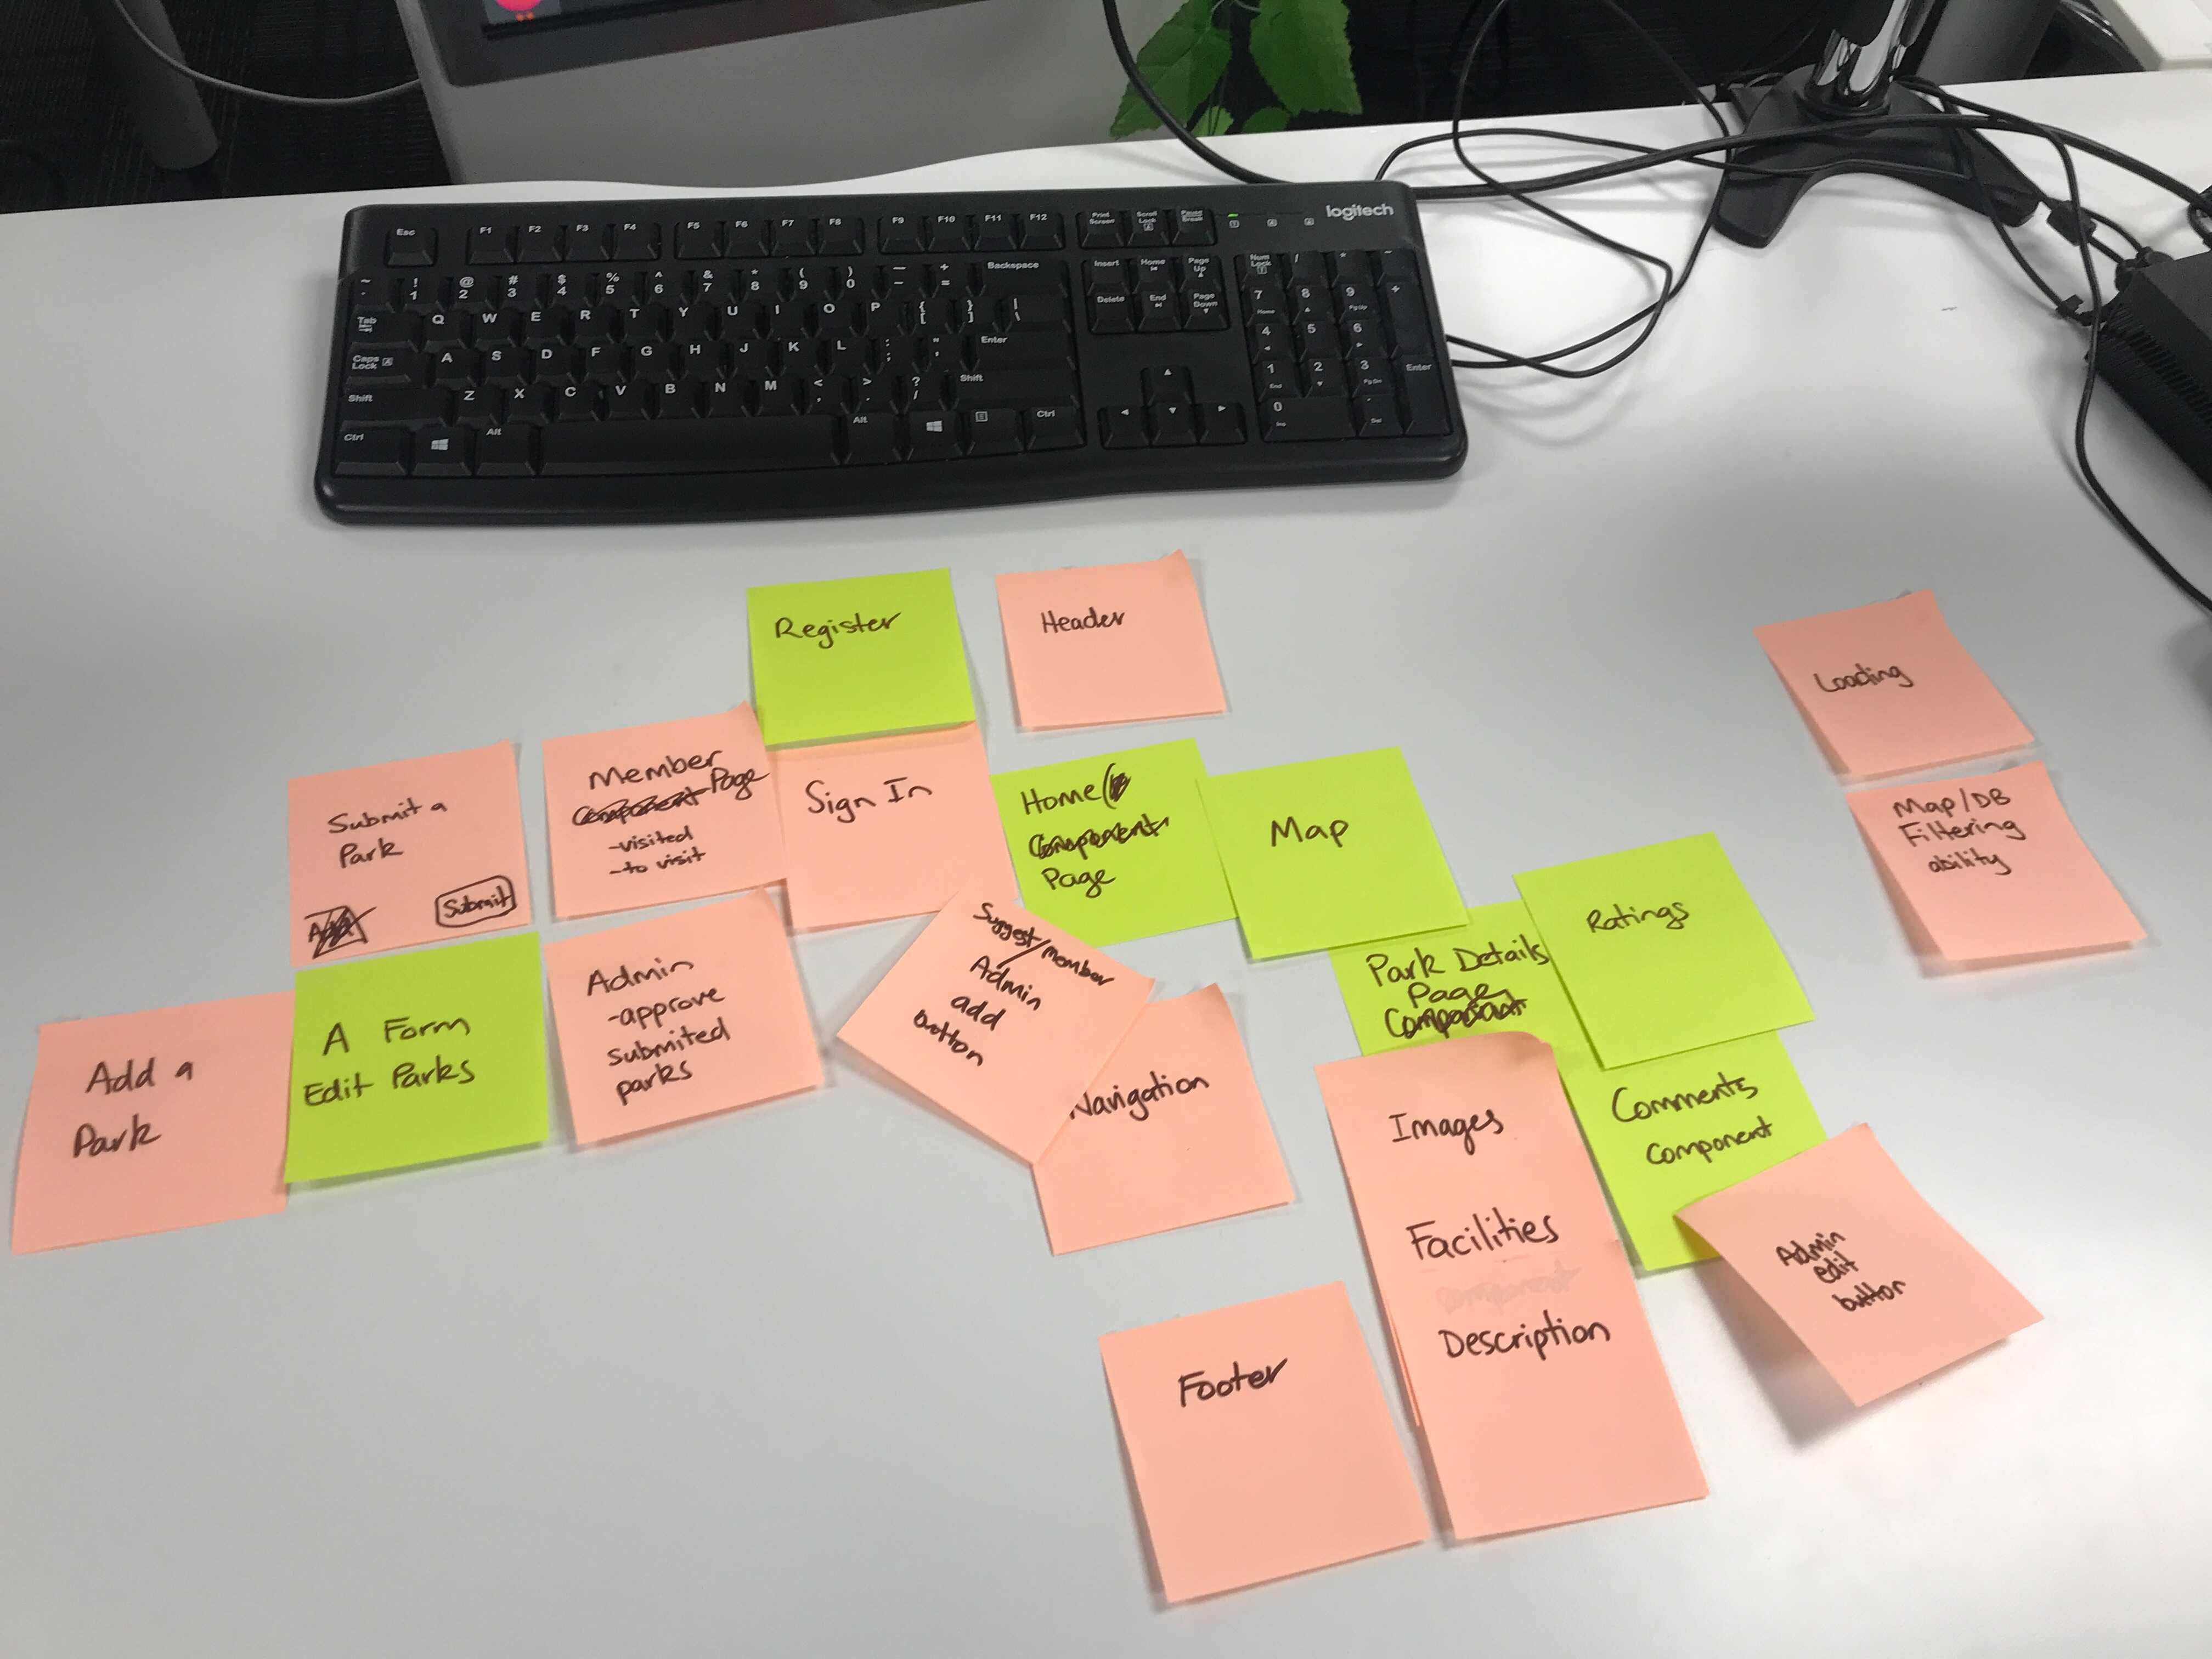 logitech
Esc F1 F2 F3 F4 F5 F6 F7 F8 F9 F10 F11 F12 Print Screen Scroll Lock Pause Break
~ ! @ # $ % ^ & * ( ) — + Backspace Insert Home Page Up Num Lock / * - +
1 2 3 4 5 6 7 8 9 0 - =
Tab Q W E R T Y U I O P { [ } ] | \ Delete End Page Down 7 8 9
Home PgUp
Caps Lock A S D F G H J K L : ; " ' Enter 4 5 6
Shift Z X C V B N M < , > . ? / Shift 1 2 3 Enter
End PgDn
Ctrl Alt Alt Ctrl 0
Ins Del
Register
Header
Loading
Submit a
Park
Submit
Member
Component Page
-visited
-to visit
Sign In
Home
Component
Page
Map
Map/DB
Filtering
ability
Ratings
Add a
Park
A Form
Edit Parks
Admin
-approve
submited
parks
Suggest/member
Admin
add
button
Navigation
Park Details
Page
Component
Images
Facilities
component
Description
Comments
Component
Admin
edit
button
Footer